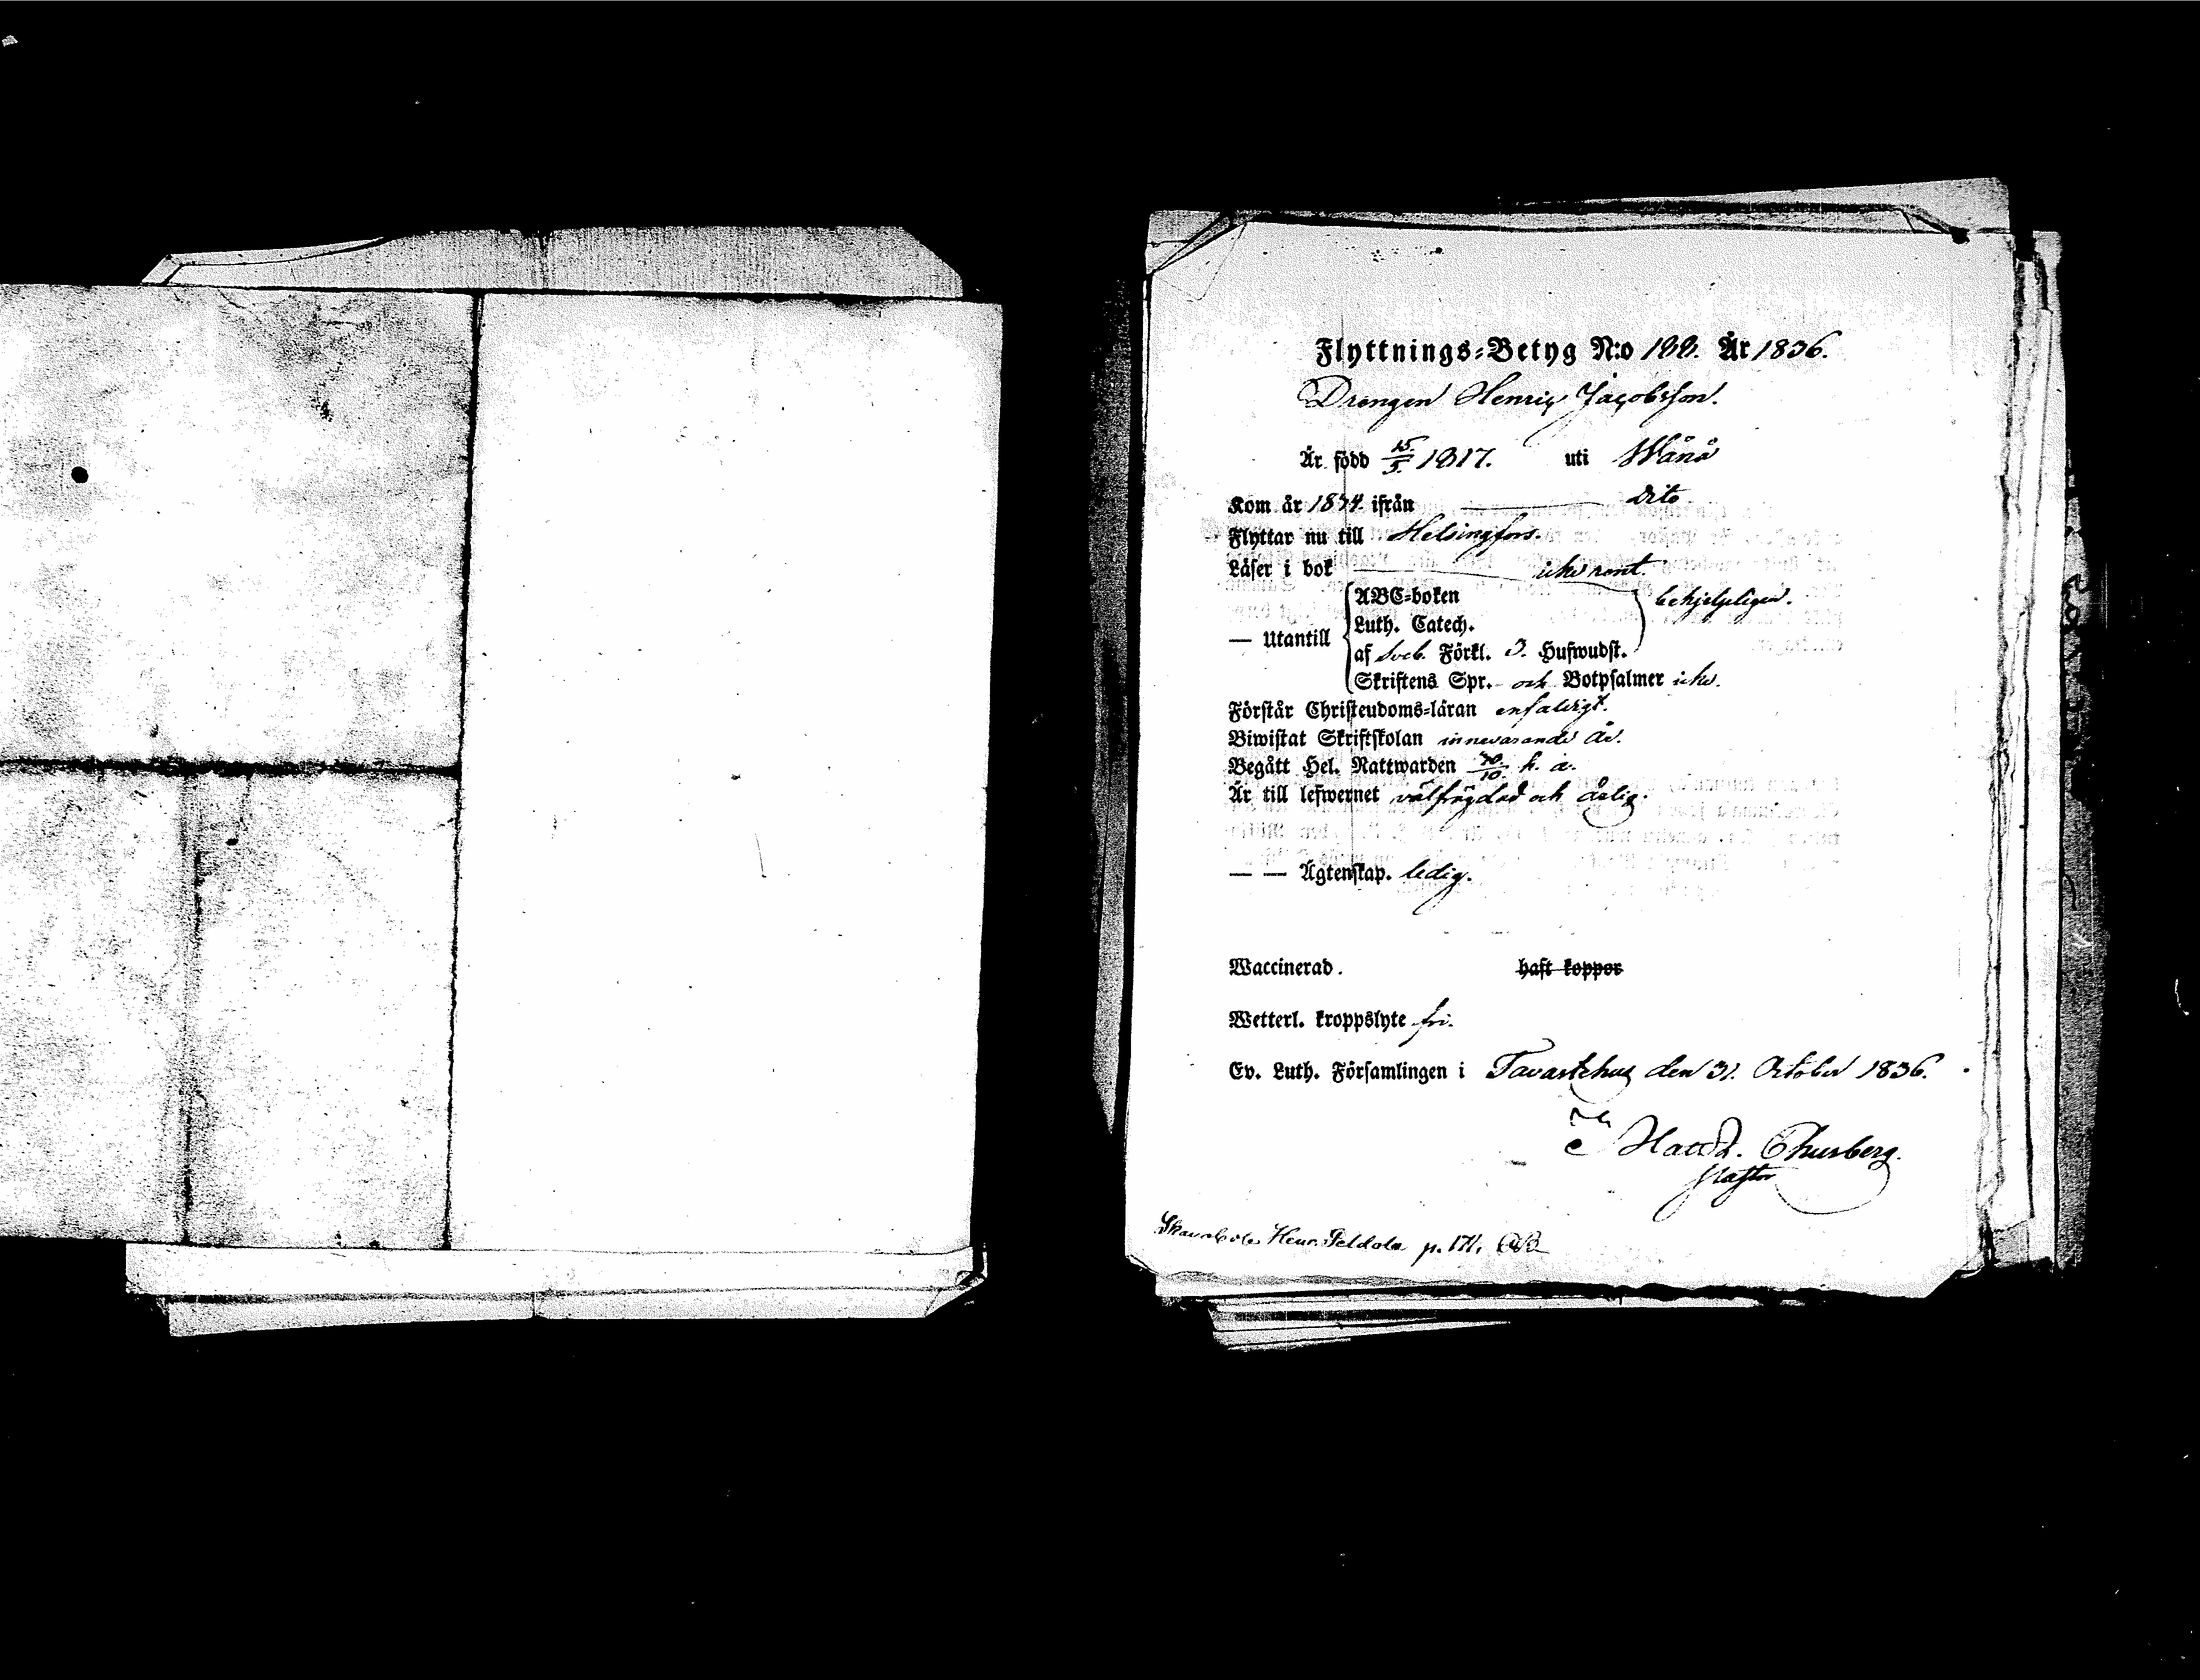 Flyttnings-Betyg N:o 188. År 1836.
Drengen Henric Jacobsson.
Är född 15/5. 1817. uti Wånå
Kom år 1834 ifrån dito
Flyttar nu till Helsingfors.
Läser i bok icke rent.
ABC-boken behjelpligen.
Luth. Catech.
— Utantill
af Sveb. Förkl. 3. Hufwudst.
Skriftens Spr. och Botpsalmer icke.
Förstår Christendoms-läran enfaldigt.
Biwistat Skriftskolan innevarande År.
Begått Hel. Nattwarden 30/10. h. a.
Är till lefwernet välfrägdad och ärlig.
— — Ägtenskap. ledig.
Waccinerad. haft koppor
Wetterl. kroppslyte fri.
Ev. Luth. Församlingen i Tavastehus den 31. October 1836.
Thusberg.
Pastor
Henr. p. 171.